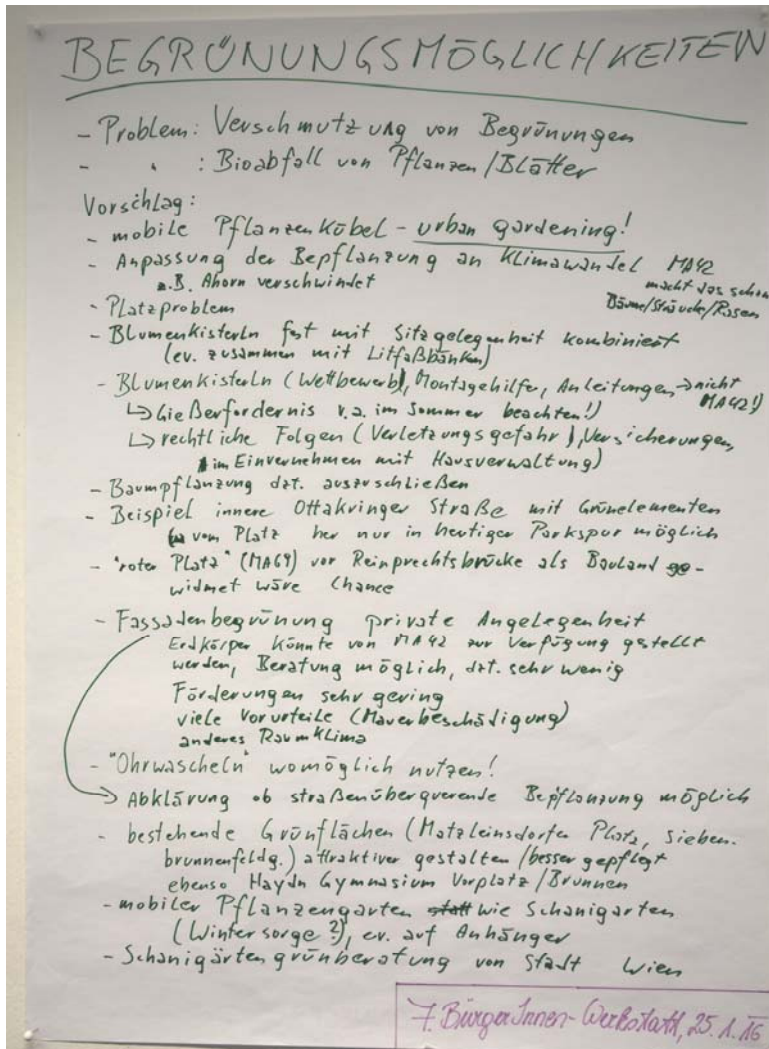 BEGRÜNUNGSMÖGLICHKEITEN
- Problem: Verschmutzung von Begrünungen
- " : Bioabfall von Pflanzen/Blätter
Vorschlag:
- mobile Pflanzenkübel - urban gardening!
- Anpassung der Bepflanzung an Klimawandel MA42
z.B. Ahorn verschwindet macht das schon
Bäume/Sträucher/Rosen
- Platzproblem
- Blumenkisterln fest mit Sitzgelegenheit kombiniert
(ev. zusammen mit Litfaßbänken)
- Blumenkisterln (Wettbewerb), Montagehilfe, Anleitungen → nicht
MA42!)
↳ Gießerfordernis v.a. im Sommer beachten!)
↳ rechtliche Folgen (Verletzungsgefahr), Versicherungen,
im Einvernehmen mit Hausverwaltung)
- Baumpflanzung dzt. auszuschließen
- Beispiel innere Ottakringer Straße mit Grünelementen
vom Platz her nur in heutiger Parkspur möglich
- "roter Platz" (MA69) vor Reinprechtsbrücke als Bauland ge-
widmet wäre Chance
- Fassadenbegrünung private Angelegenheit
Erdkörper könnte von MA42 zur Verfügung gestellt
werden, Beratung möglich, dzt. sehr wenig
Förderungen sehr gering
viele Vorurteile (Mauerbeschädigung)
anderes Raumklima
- "Ohrwascheln" womöglich nutzen!
→ Abklärung ob straßenüberquerende Bepflanzung möglich
- bestehende Grünflächen (Matzleinsdorfer Platz, Sieben-
brunnenfeldg.) attraktiver gestalten/besser gepflegt
ebenso Haydn Gymnasium Vorplatz/Brunnen
- mobiler Pflanzengarten statt wie Schanigarten
(Wintersorge?), ev. auf Anhänger
- Schanigärtengrünberatung von Stadt Wien
7. BürgerInnen-Werkstatt, 25.1.16